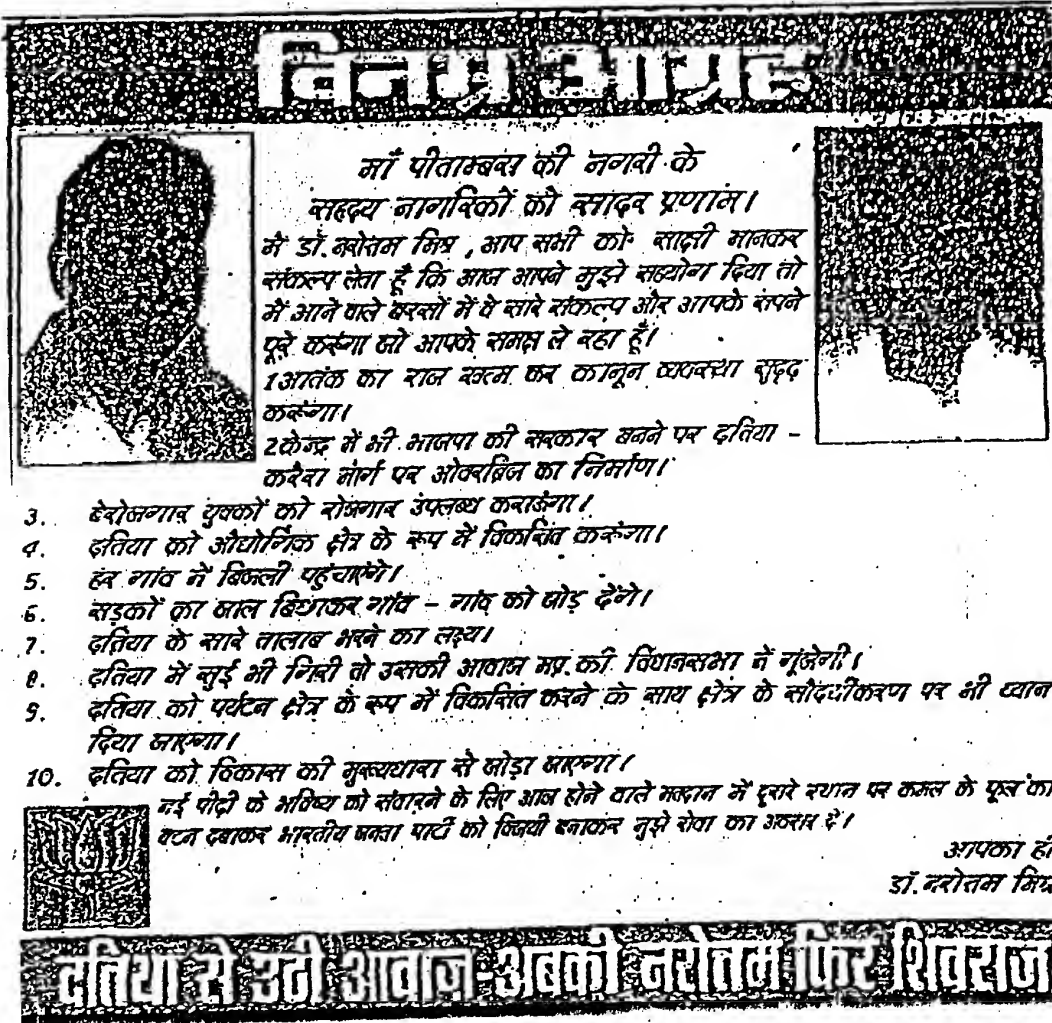 विनम्र आग्रह
माँ पीताम्बरा की नगरी के
सहृदय नागरिकों को सादर प्रणाम।
मैं डॉ. नरोत्तम मिश्र , आप सभी को साक्षी मानकर
संकल्प लेता हूँ कि आज आपने मुझे सहयोग दिया तो
मैं आने वाले बरसों में वे सारे संकल्प और आपके सपने
पूरे करूंगा जो आपके समक्ष ले रहा हूँ।
1 आतंक का राज खत्म कर कानून व्यवस्था सुदृढ़
करूंगा।
2 केन्द्र में भी भाजपा की सरकार बनने पर दतिया -
करैरा मार्ग पर ओवरब्रिज का निर्माण।
3. बेरोजगार युवकों को रोजगार उपलब्ध कराऊंगा।
4. दतिया को औद्योगिक क्षेत्र के रूप में विकसित करूंगा।
5. हर गांव में बिजली पहुंचाएंगे।
6. सड़कों का जाल बिछाकर गांव - गांव को जोड़ देंगे।
7. दतिया के सारे तालाब भरने का लक्ष्य।
8. दतिया में सुई भी गिरी तो उसकी आवाज मप्र. की विधानसभा में गूंजेगी।
9. दतिया को पर्यटन क्षेत्र के रूप में विकसित करने के साथ क्षेत्र के सौंदर्यीकरण पर भी ध्यान
दिया जाएगा।
10. दतिया को विकास की मुख्यधारा से जोड़ा जाएगा।
नई पीढ़ी के भविष्य को संवारने के लिए आज होने वाले मतदान में दूसरे स्थान पर कमल के फूल का
बटन दबाकर भारतीय जनता पार्टी को विजयी बनाकर मुझे सेवा का अवसर दें।
आपका ही
डॉ. नरोत्तम मिश्र
दतिया से उठी आवाज-अबकी नरोत्तम फिर शिवराज